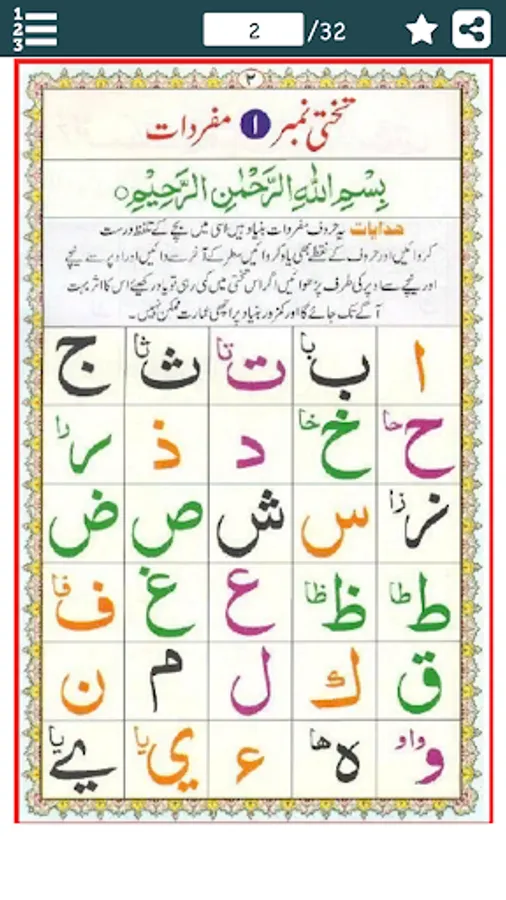 1
2
3
2 /32
٢
تختی نمبر ١ مفردات
بِسْمِ اللهِ الرَّحْمٰنِ الرَّحِيْمِ ○
ھدایات یہ حروف مفردات بنیاد ہیں اسی میں بچے کے تلفظ درست
کروائیں اور حروف کے نقطے بھی یاد کروائیں سطر کے آخر سے دائیں اور اوپر سے نیچے
اور نیچے سے اوپر کی طرف پڑھوائیں اگر اس تختی میں کمی رہی تو یاد رکھیئے اس کا اثر بہت
آگے تک جائے گا اور کمزور بنیاد پر اچھی عمارت ممکن نہیں۔
ا ب با ت تا ث ثا ج
ح حا خ خا د ذ ر را
ز زا س ش ص ض
ط طا ظ ظا ع غ ف فا
ق ك ل م ن
و واو ه ها ء ي يا ے يا